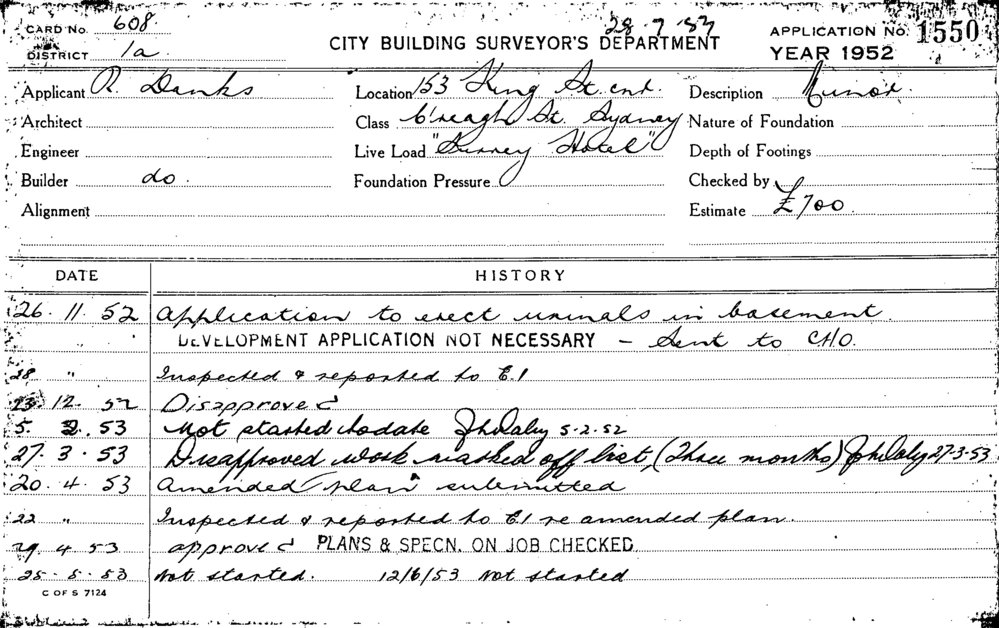 CARD No. 608
28.7.53
APPLICATION No. 1550
DISTRICT 1a
CITY BUILDING SURVEYOR'S DEPARTMENT
YEAR 1952
Applicant R. Danks
Location 153 King St. cnr.
Description Minor.
Architect
Class C'reagh St. Sydney
Nature of Foundation
Engineer
Live Load "Surrey Hotel"
Depth of Footings
Builder do.
Foundation Pressure
Checked by
Alignment
Estimate £700.
DATE HISTORY
26. 11. 52 Application to erect urinals in basement.
DEVELOPMENT APPLICATION NOT NECESSARY - Sent to CHO.
28 " Inspected & reported to E.1
23. 12. 52 Disapproved
5. 2. 53 Not started to date 5-2-52
27. 3. 53 Disapproved work marked off list, (Three months) 27-3-53
20. 4. 53 Amended plan submitted
22 " Inspected & reported to E.1 re amended plan.
29. 4. 53 approved PLANS & SPECN. ON JOB CHECKED
25. 5. 53 Not started. 12/6/53 Not started
C OF S 7124